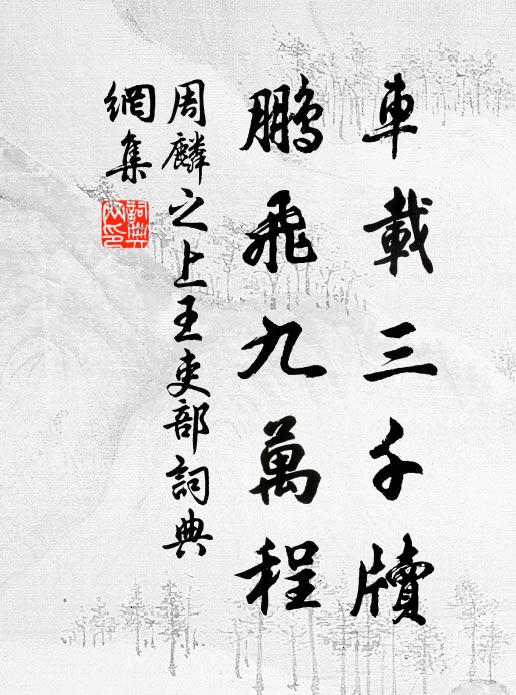 車載三千牘
鵬飛九萬程
周麟之上王吏部詞典
網集